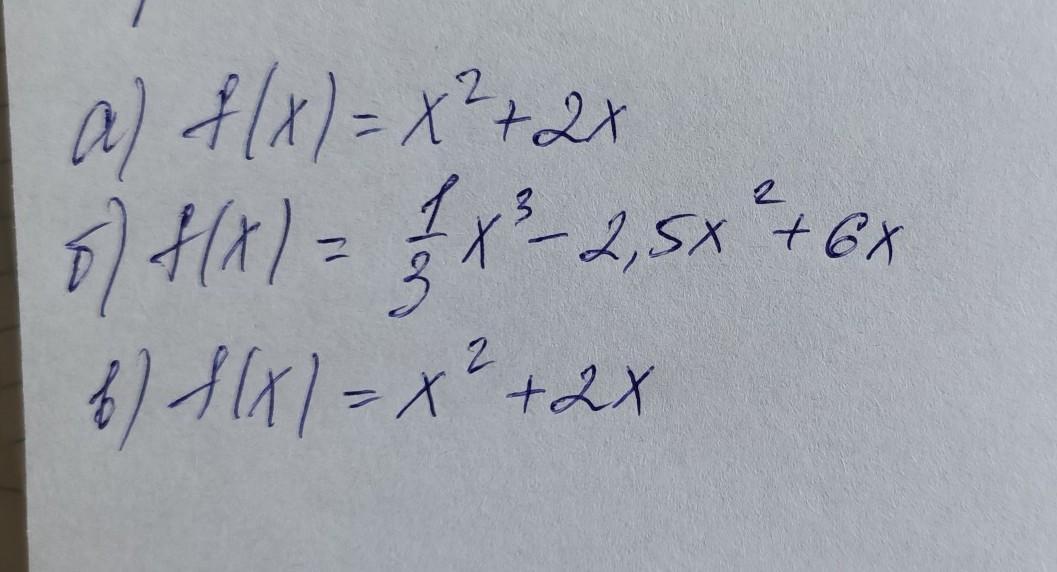 а) f(x) = x² + 2x
б) f(x) = 1/3 x³ - 2,5x² + 6x
в) f(x) = x² + 2x